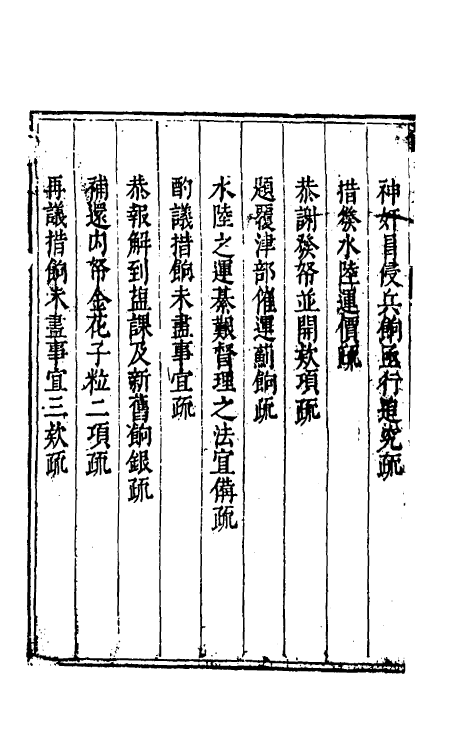 神奸冒侵兵餉亟行追究疏
措發水陸運價疏
恭謝發帑並開欵項疏
題覆津部催運薊餉疏
水陸之運綦艱督理之法宜備疏
酌議措餉未盡事宜疏
恭報解到盐課及新舊餉銀疏
補還内帑金花子粒二項疏
再議措餉未盡事宜三欵疏